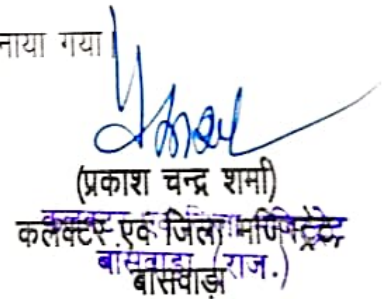 नाया गया
(प्रकाश चन्द्र शर्मा)
कलेक्टर एवं जिला मजिस्ट्रेट
बांसवाड़ा (राज.)
बांसवाड़ा